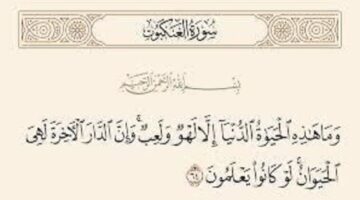 سُورَةُ العَنكَبُوتِ
بِسْمِ ٱللَّهِ ٱلرَّحْمَٰنِ ٱلرَّحِيمِ
وَمَا هَٰذِهِ ٱلْحَيَوٰةُ ٱلدُّنْيَآ إِلَّا لَهْوٌ وَلَعِبٌ ۚ وَإِنَّ ٱلدَّارَ ٱلْآخِرَةَ لَهِىَ
ٱلْحَيَوَانُ ۚ لَوْ كَانُوا۟ يَعْلَمُونَ ٦٤